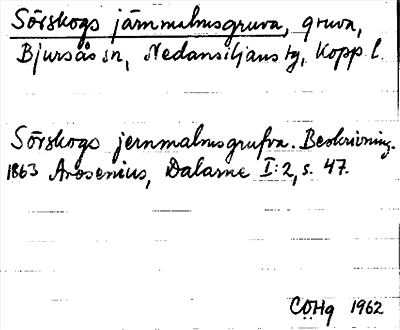 Sörskogs järnmalmsgruva, gruva,
Bjursås sn, Nedansiljans tg, Kopp l.
Sörskogs jernmalmsgrufva. Beskrivning.
1863 Arosenius, Dalarne I:2, s. 47.
CÖHg 1962